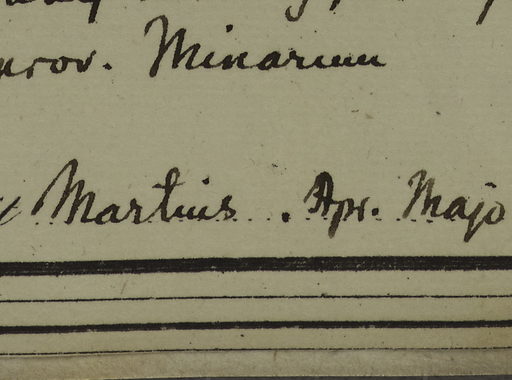 prov. Minarum
Martius. Apr. Majo